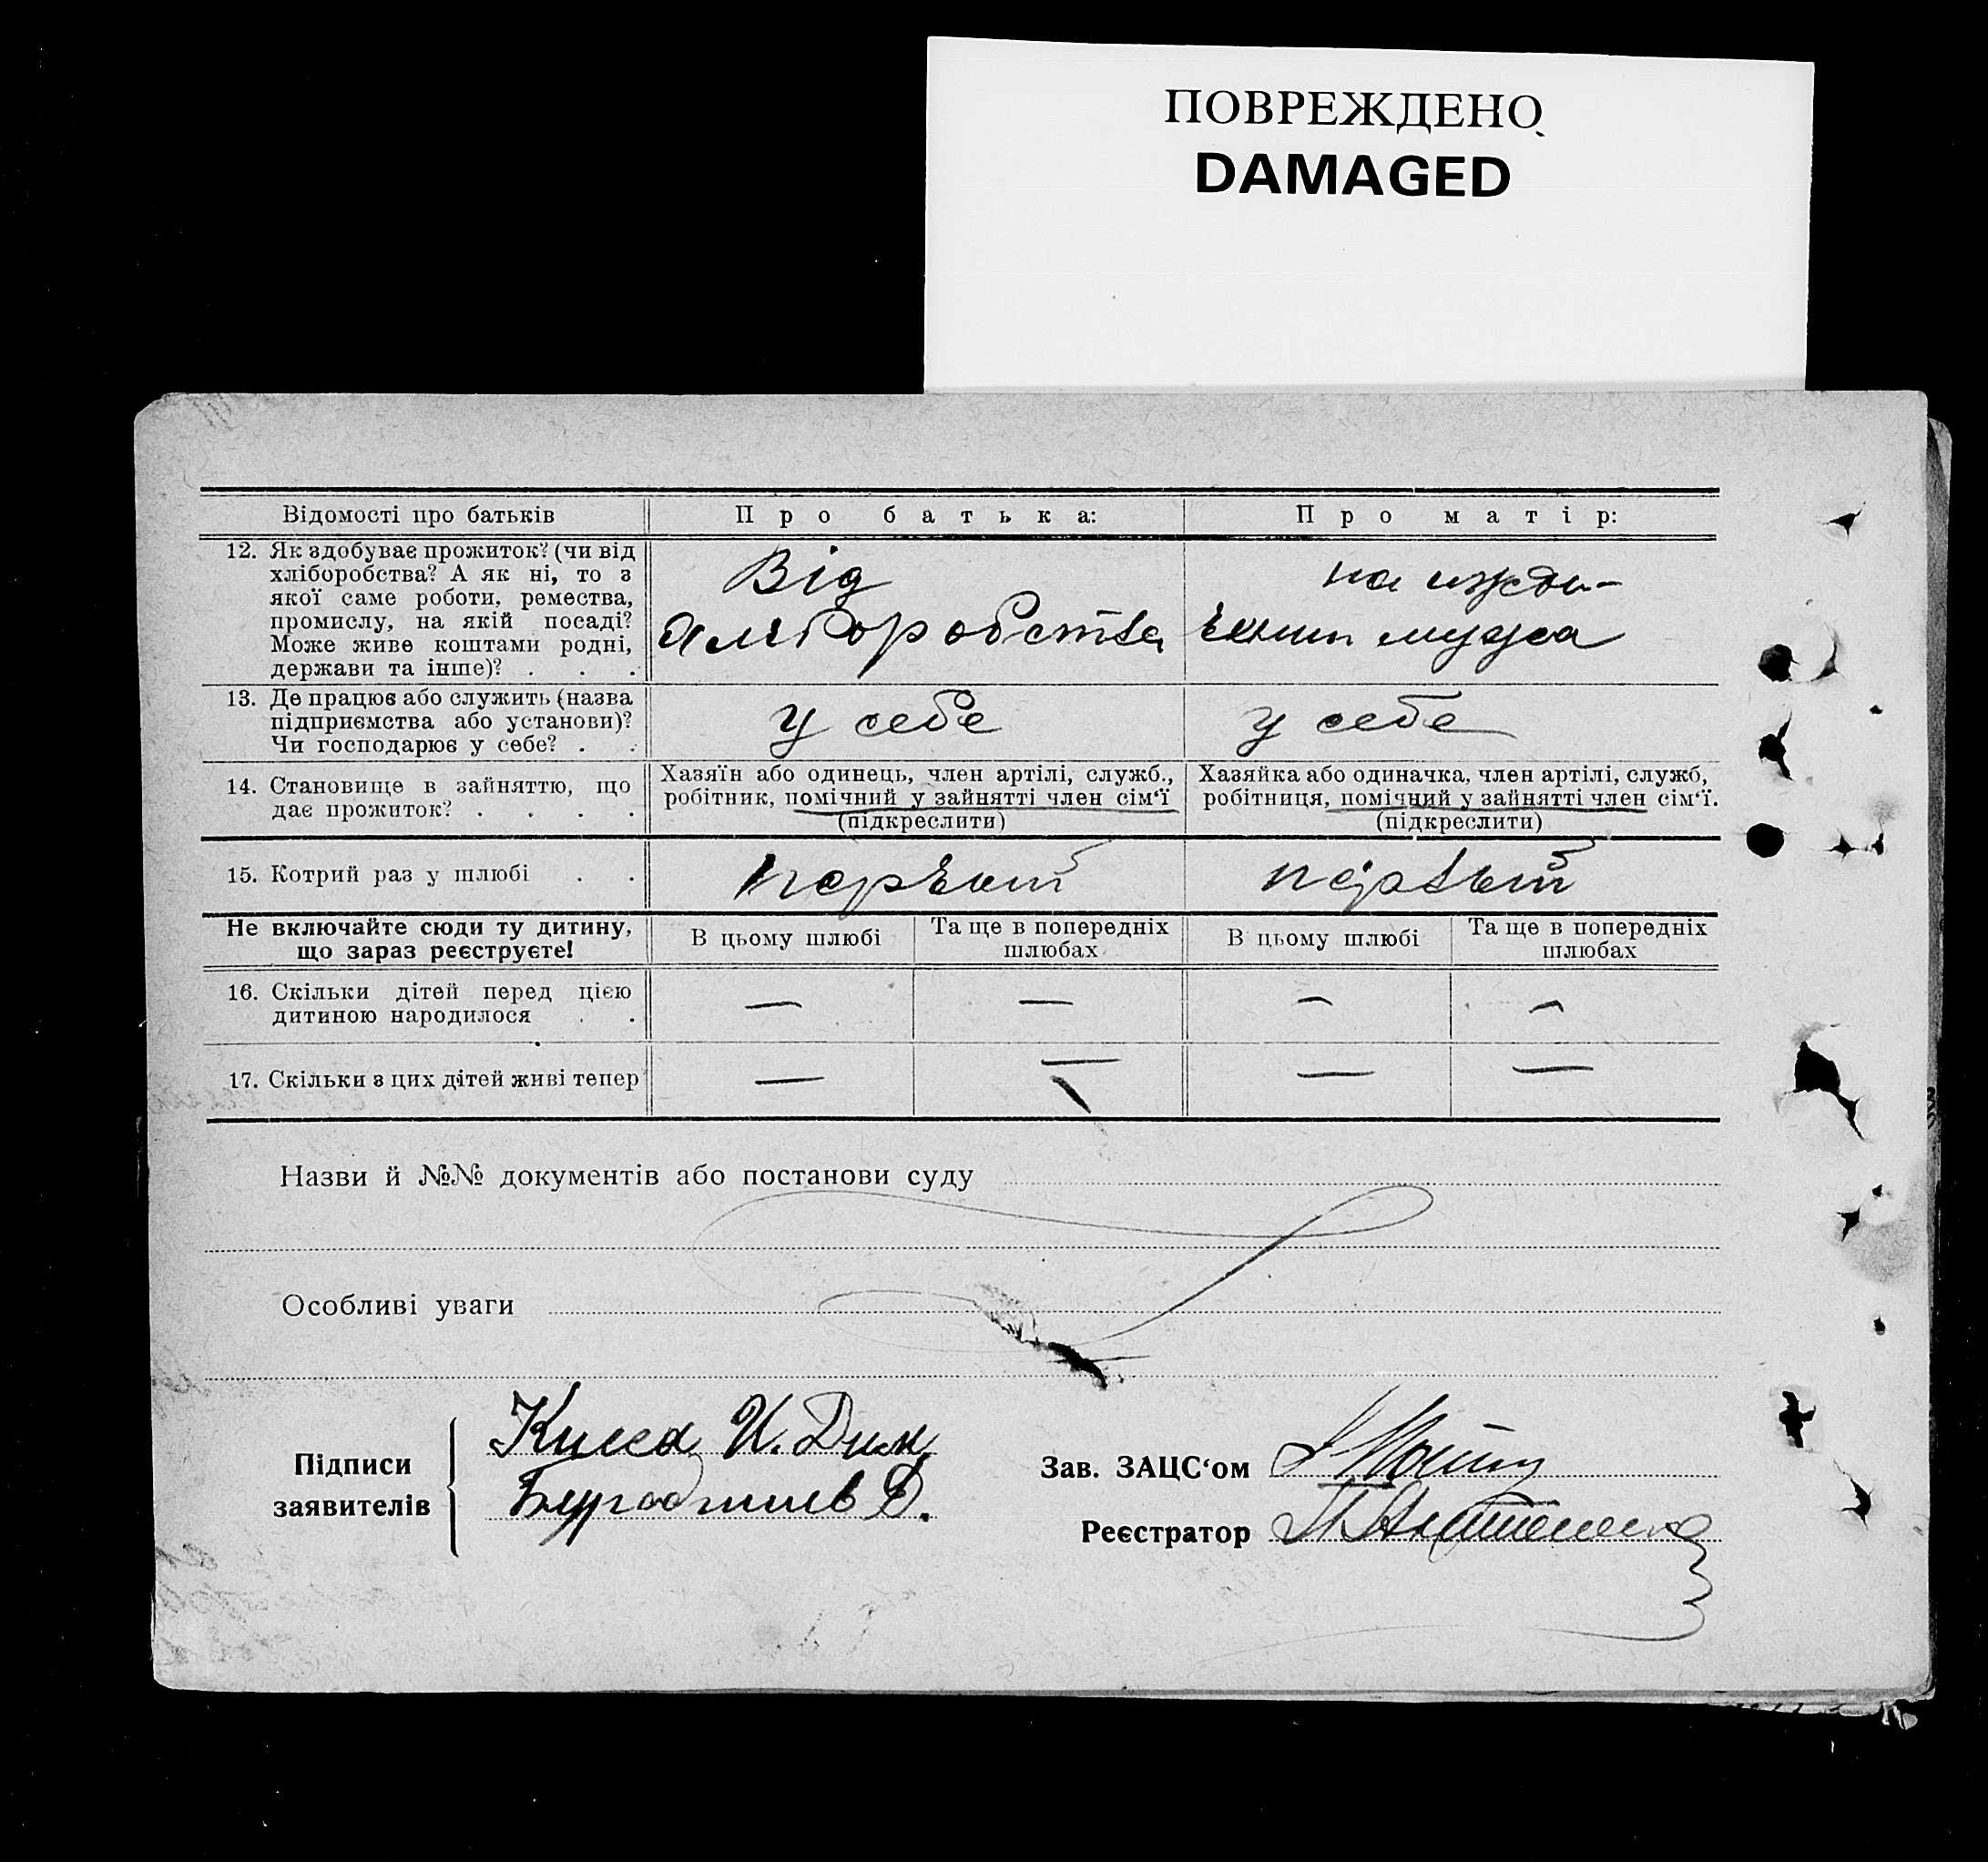 ПОВРЕЖДЕНО
DAMAGED
Відомості про батьків
Про батька:
Про матір:
12. Як здобуває прожиток? (чи від
хліборобства? А як ні, то з
якої саме роботи, ремества,
промислу, на якій посаді?
Може живе коштами родні,
держави та інше)? . . .
Від
хліборобства
на ижди-
вении мужа
13. Де працює або служить (назва
підприємства або установи)?
Чи господарює у себе? . .
у себе
у себе
14. Становище в зайняттю, що
дає прожиток? . . . .
Хазяїн або одинець, член артілі, служб.,
робітник, помічний у зайнятті член сім‘ї
(підкреслити)
Хазяйка або одиначка, член артілі, служб,
робітниця, помічний у зайнятті член сім‘ї.
(підкреслити)
15. Котрий раз у шлюбі . .
первый
первый
Не включайте сюди ту дитину,
що зараз реєструєте!
В цьому шлюбі
Та ще в попередніх
шлюбах
В цьому шлюбі
Та ще в попередніх
шлюбах
16. Скільки дітей перед цією
дитиною народилося . .
— — — —
17. Скільки з цих дітей живі тепер
— — — —
Назви й №№ документів або постанови суду
Особливі уваги
Підписи
заявителів
И. Дим
Д.
Зав. ЗАЦС‘ом
Реєстратор